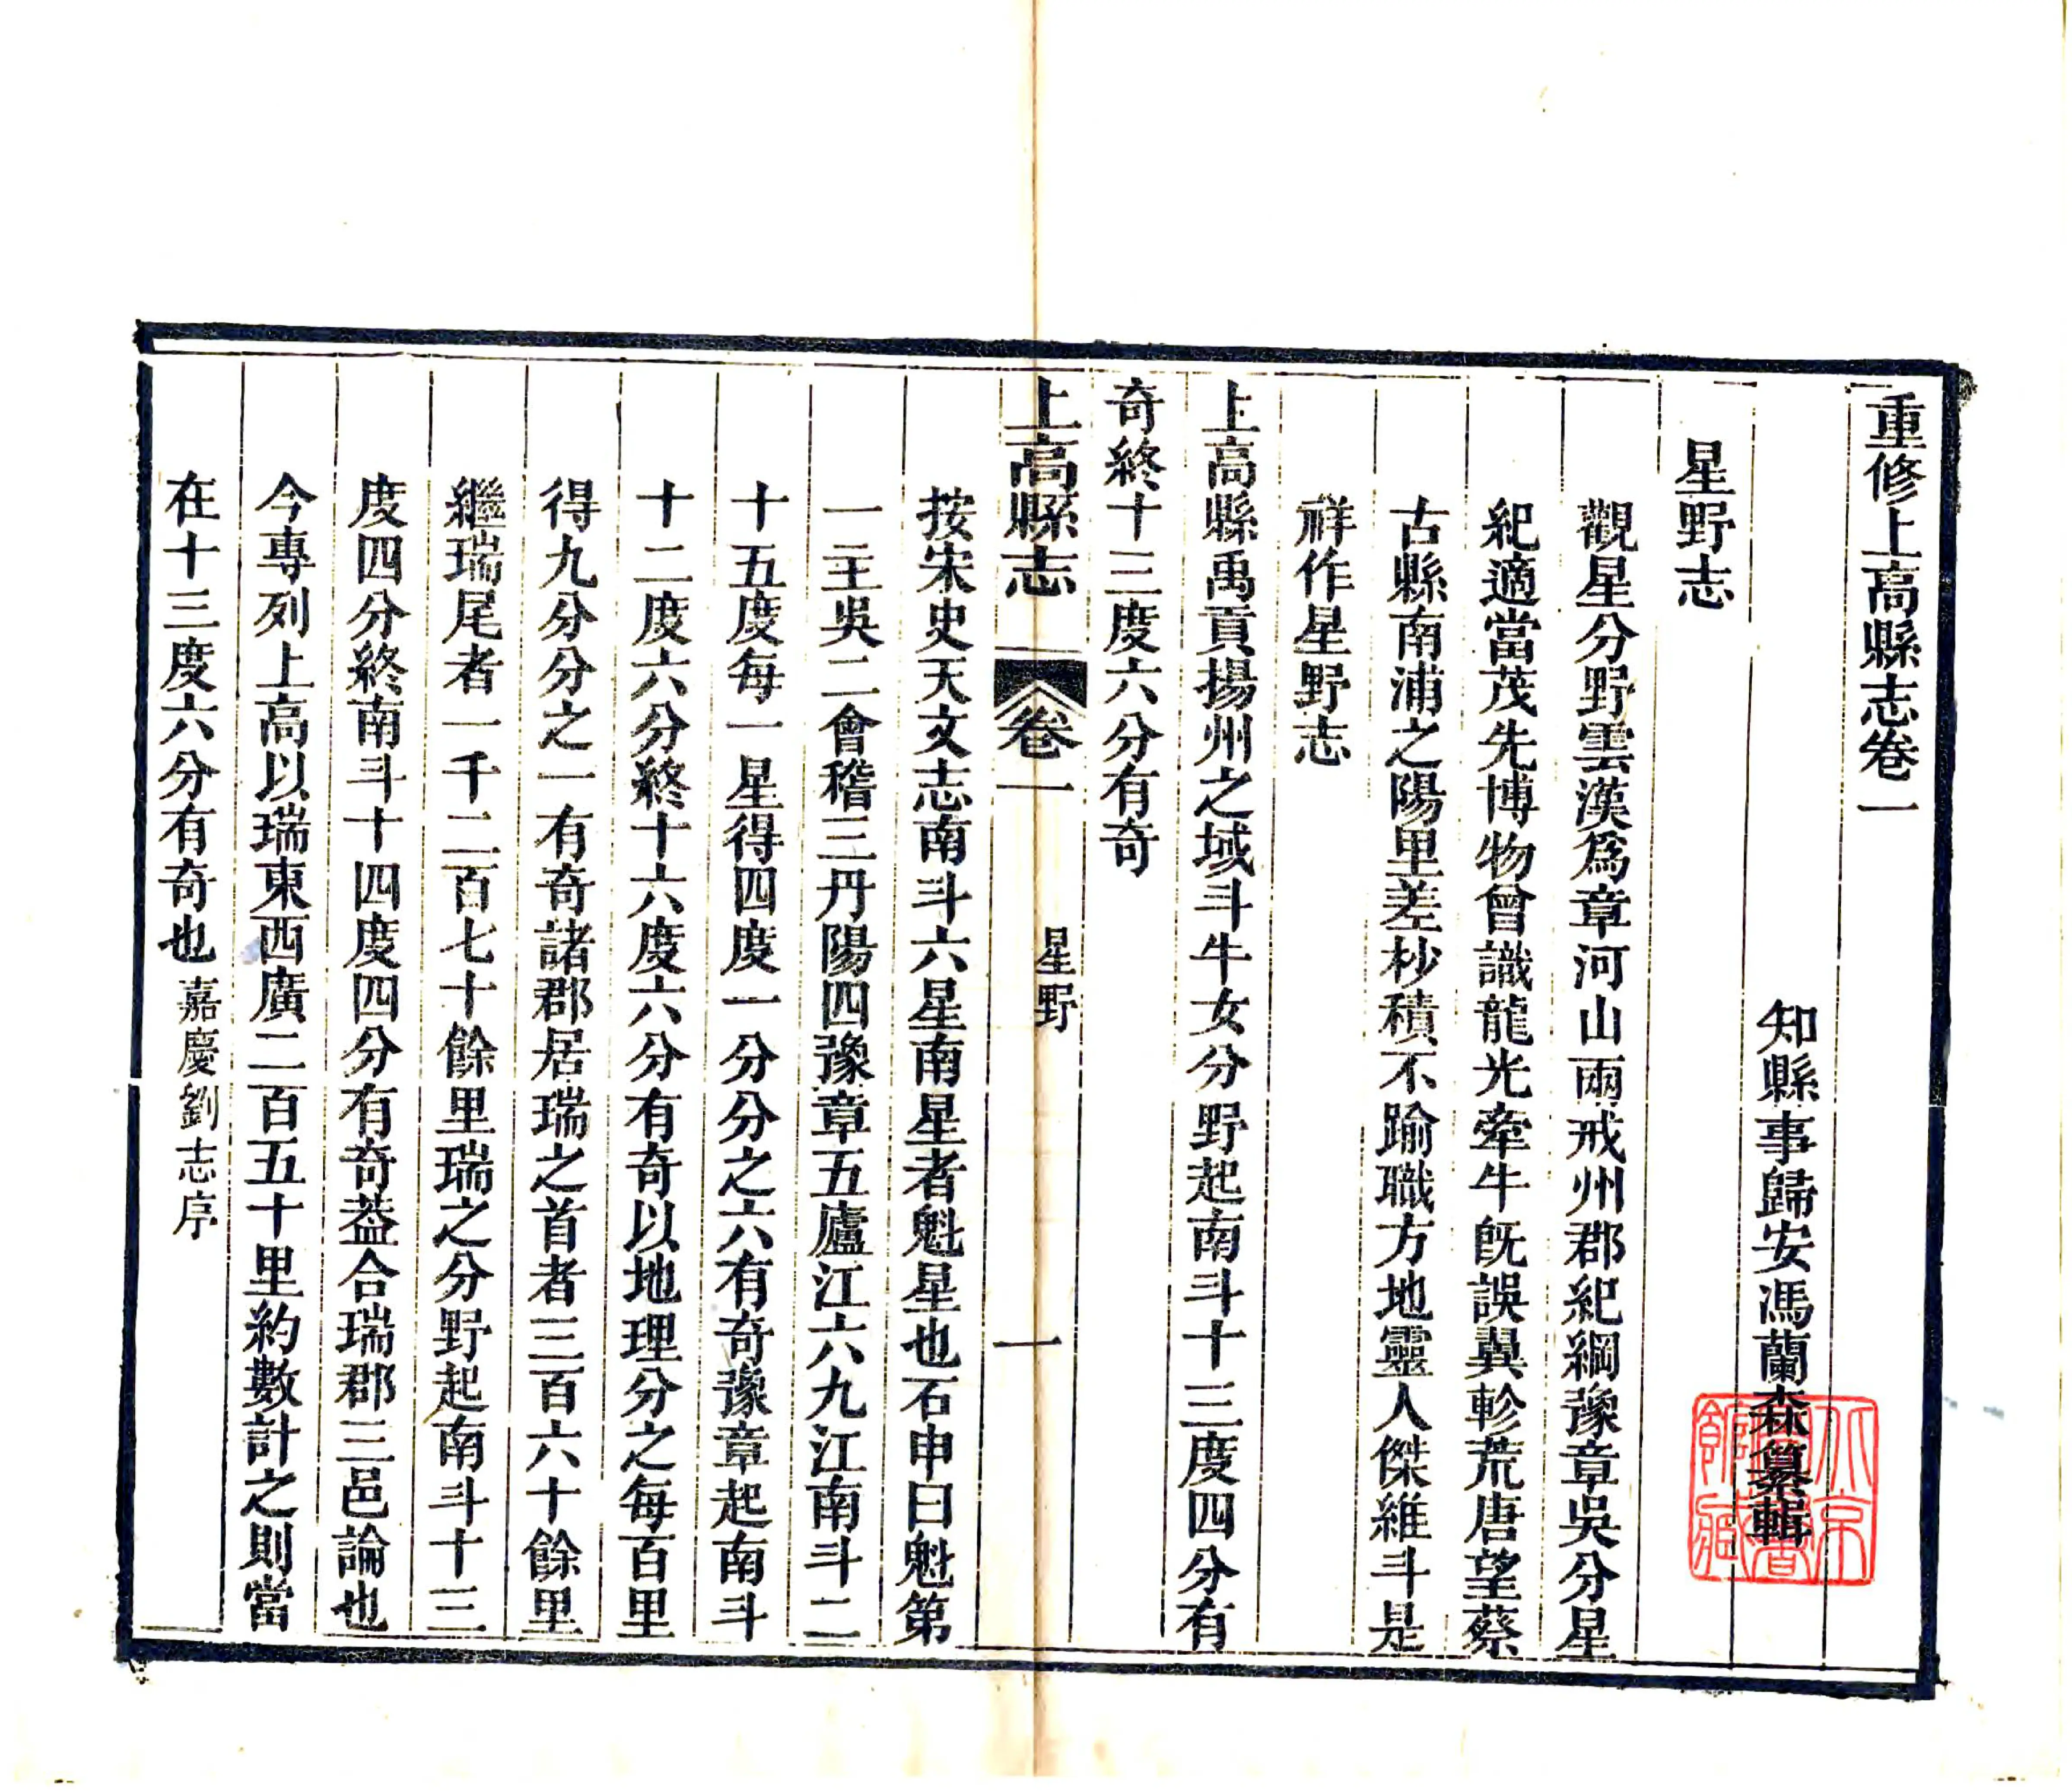 重修上高縣志卷一
知縣事歸安馮蘭森纂輯
星野志
觀星分野雲漢爲章河山兩戒州郡紀綱豫章吳分星
紀適當茂先博物曾識龍光牽牛旣誤翼軫荒唐望蔡
古縣南浦之陽里差杪積不踰職方地靈人傑維斗是
祥作星野志
上高縣禹貢揚州之域斗牛女分野起南斗十三度四分有
奇終十三度六分有奇
上高縣志
卷一
星野
一
按宋史天文志南斗六星南星者魁星也石申曰魁第
一主吳二會稽三丹陽四豫章五廬江六九江南斗二
十五度每一星得四度一分分之六有奇豫章起南斗
十二度六分終十六度六分有奇以地理分之每百里
得九分分之一有奇諸郡居瑞之首者三百六十餘里
繼瑞尾者一千二百七十餘里瑞之分野起南斗十三
度四分終南斗十四度四分有奇葢合瑞郡三邑論也
今專列上高以瑞東西廣二百五十里約數計之則當
在十三度六分有奇也嘉慶劉志序
北京
圖書
館藏